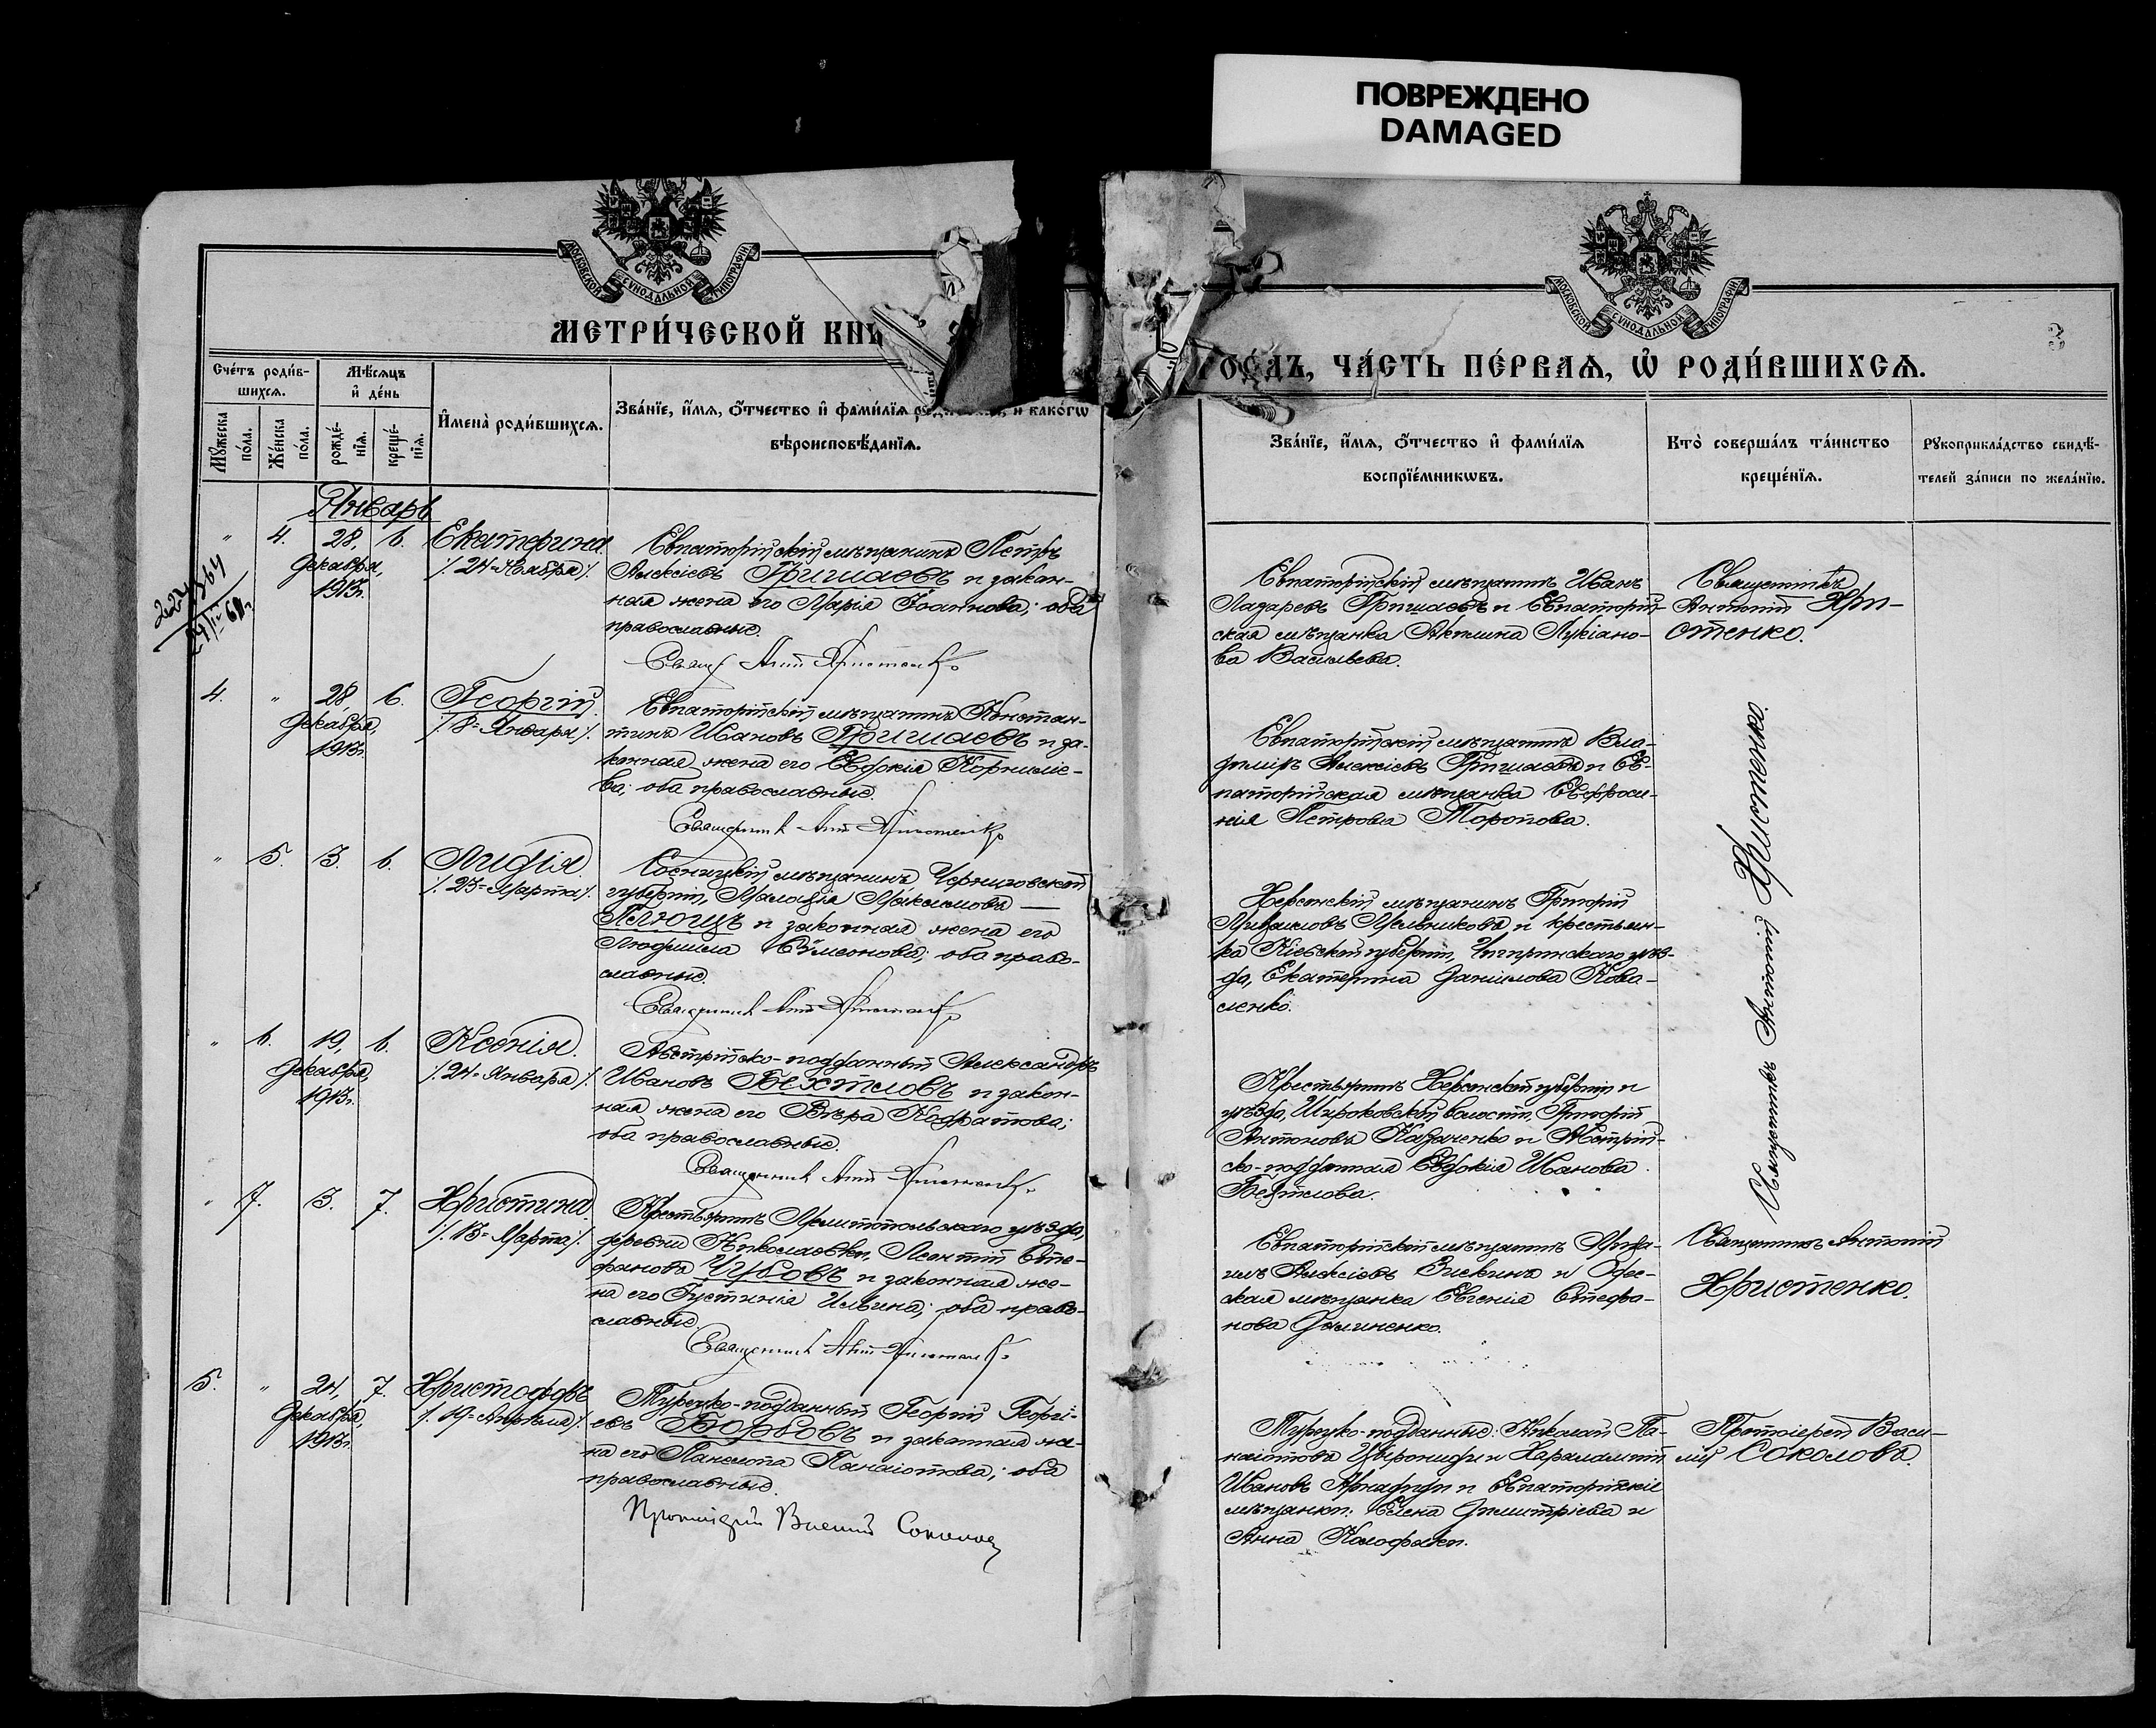 ПОВРЕЖДЕНО
DAMAGED
МОСКОВСКОЙ СУНОДАЛЬНОЙ ТИПОГРАФІИ
МОСКОВСКОЙ СУНОДАЛЬНОЙ ТИПОГРАФІИ
3
МЕТРИ́ЧЕСКОЙ КНИ
ГО́ДЪ, ЧА́СТЬ ПЕ́РВАѦ, Ѽ РОДИ́ВШИХСѦ.
Сче́тъ роди́в-
шихсѧ.
Мѣсѧцъ
и҆ де́нь
Мꙋ́жеска
по́ла.
Же́нска
по́ла.
рожде́-
нїѧ.
креще́-
нїѧ.
И҆мена̀ роди́вшихсѧ.
Зва́нїе, и҆́мѧ, ѻ҆́тчество и҆ фами́лїѧ и҆ како́гѡ
вѣроисповѣ́данїѧ.
Зва́нїе, и҆́мѧ, ѻ҆́тчество и҆ фами́лїѧ
воспрїе́мникѡвъ.
Кто̀ соверша́лъ та́инство
креще́нїѧ.
Рꙋкоприкла́дство свидѣ́-
телей за́писи по жела́нїю.
Январь
" 4. 28, 6. Екатерина
Декабря, /. 24=Ноября /.
1913г.
Евпаторійскій мѣщанинъ Петръ
Алексіевъ Гришаевъ и закон-
ная жена его Марія Іоаннова; оба
православные.
Свящ. Ант. Христенко
Евпаторійскій мѣщанинъ Иванъ
Лазаревъ Гришаевъ и Евпаторій-
ская мѣщанка Акилина Лукіано-
ва Васильева.
Священникъ
Антоній Хри-
стенко.
4. " 28, 6. Георгій.
Декабря, /. 8=Января /.
1913г.
Евпаторійскій мѣщанинъ Констан-
тинъ Ивановъ Гришаевъ и за-
конная жена его Евдокія Корниліе-
ва; оба православные.
Священникъ Ант. Христенко
Евпаторійскій мѣщанинъ Вла-
диміръ Алексіевъ Гришаевъ и Ев-
паторійская мѣщанка Евфроси-
нія Петрова Торопова.
Священникъ Антоній Христенко.
" 5. 3. 6. Лидія.
/. 23=Марта /.
Сосницкій мѣщанинъ Черниговской
губерніи, Малахія Максимовъ
и законная жена его
Людмила Сѵмеонова; оба право-
славные.
Священникъ Ант. Христенко
Херсонскій мѣщанинъ Григорій
Мельниковъ и крестьян-
ка Кіевской губерніи, Чигиринскаго уѣз-
да, Екатерина Даніилова Кова-
ленко.
" 6. 19, 6. Ксенія.
Декабря, /. 24=Января /.
1913г.
Австрійско-подданный Александръ
Ивановъ Бехтловъ и закон-
ная жена его Вѣра Кодратова;
оба православные.
Священникъ Ант. Христенко
Крестьянинъ Херсонской губерніи и
уѣзда, Широковской волости, Григорій
Антоновъ Казаченко и Австрій-
ско-подданная Евдокія Иванова
Бехтлова.
" 7. 3. 7. Христина.
/. 13=Марта /.
Крестьянинъ Мелитопольскаго уѣзда,
деревни Николаевки, Леонтій Сте-
фановъ Чубовъ и законная же-
на его Густинія Ильина; оба право-
славные.
Священникъ Ант. Христенко
Евпаторійскій мѣщанинъ
Алексіевъ и Одес-
ская мѣщанка Евгенія Стефа-
нова Калиненко.
Священникъ Антоній
Христенко.
5. " 24, 7. Христофоръ
Декабря, /. 19=Апрѣля /.
1913г.
Турецко-подданный Георгій Георгі-
евъ и законная же-
на его Панаіотова; оба
православные.
Протоіерей Василій Соколовъ
Турецко-подданные: Николай Па-
наіотовъ и Харалампій
Ивановъ и Евпаторійскіе
мѣщанки: Елена Димитріева и
Анна
Протоіерей Васи-
лій Соколовъ.